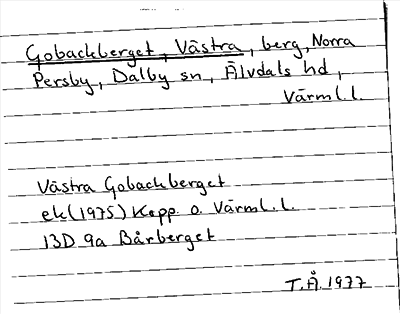 Gobackberget, Västra, berg, Norra
Persby, Dalby sn, Älvdals hd,
Värml.l.
Västra Gobackberget
ek (1975) Kopp. o. Värml.l.
13D 9a Bårberget
T.Å. 1977